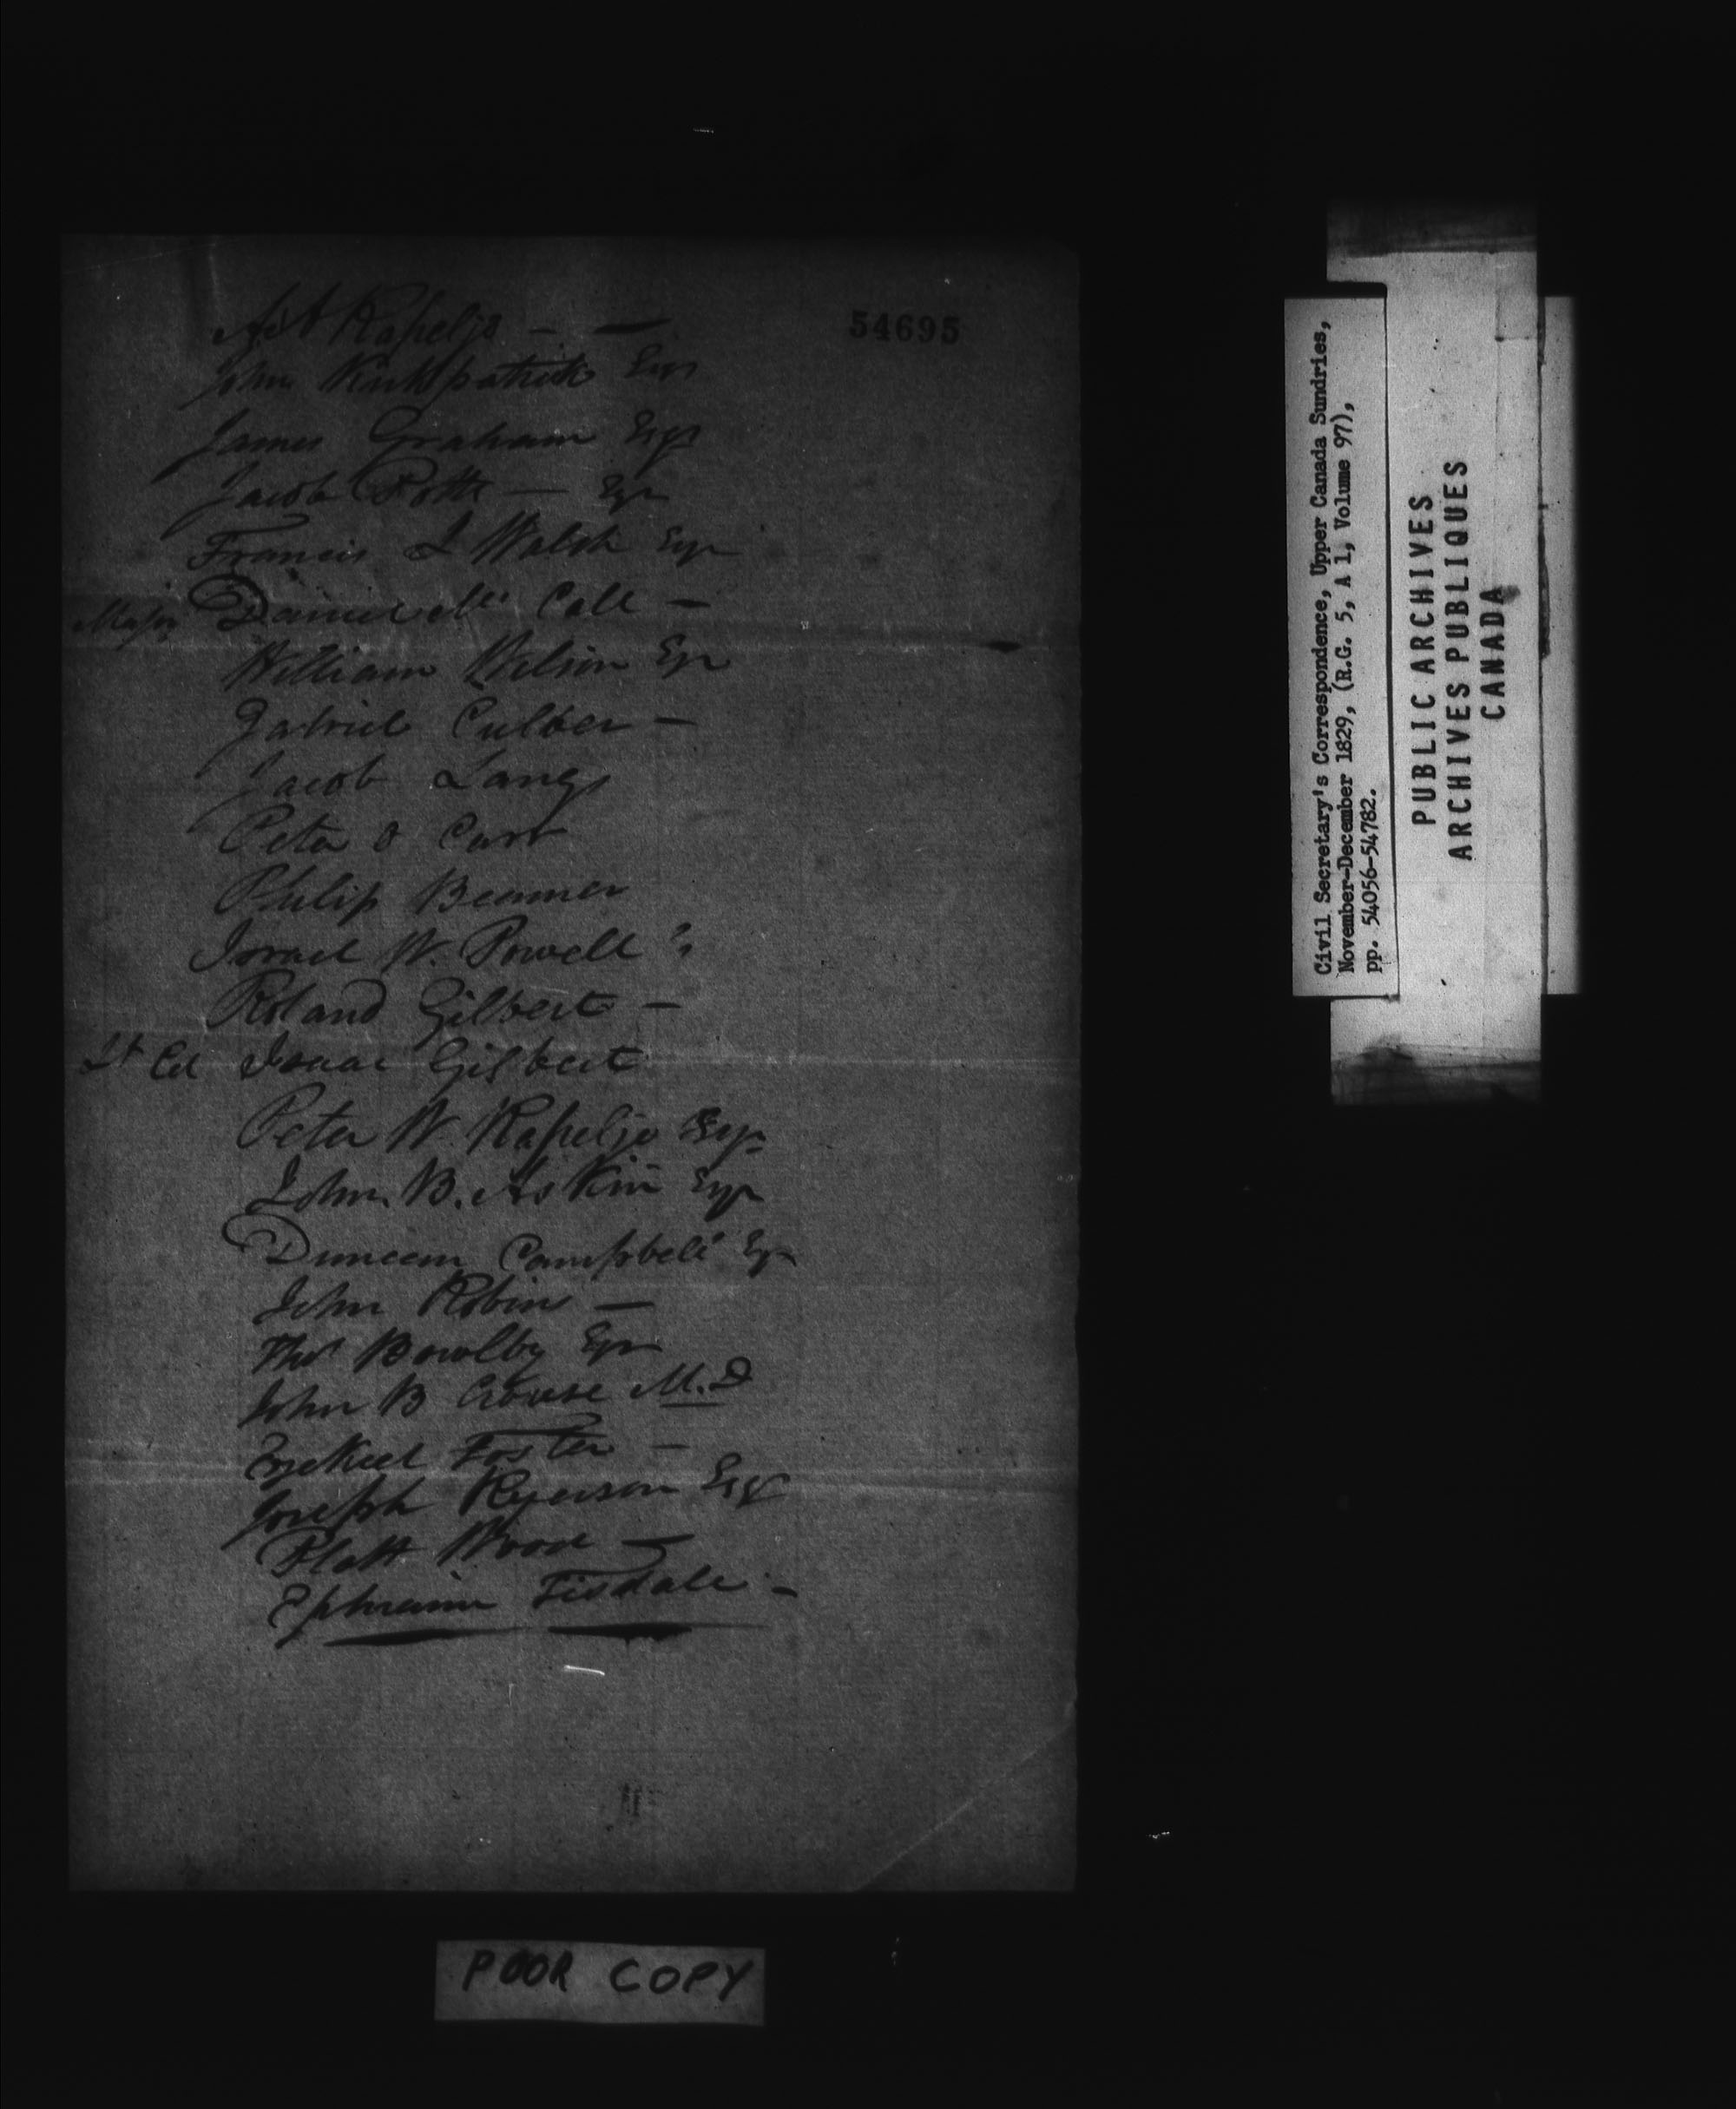 54695
Rapelje — —
John Kirkpatrick Esqr
James Graham Esqr
Jacob Potts — Esqr
Francis L Walsh Esqr
Major Daniel Mc Call —
William Wilson Esqr
Gabriel Culver —
Jacob Langs
Peter O Carr
Philip Beemer
Israel W. Powell
Roland Gilbert —
Lt Col Isaac Gilbert
Peter W. Rapelje Esqr
John. B. Askin Esqr
Duncan Campbell Esqr
John Robins —
Thos Bowlby Esqr
John B Crouse M.D
Ezekiel Foster —
Joseph Ryerson Esqr
Platt Wood —
Ephraim Tisdale —
POOR COPY
Civil Secretary's Correspondence, Upper Canada Sundries,
November-December 1829, (R.G. 5, A 1, Volume 97),
pp. 54056-54782.
PUBLIC ARCHIVES
ARCHIVES PUBLIQUES
CANADA